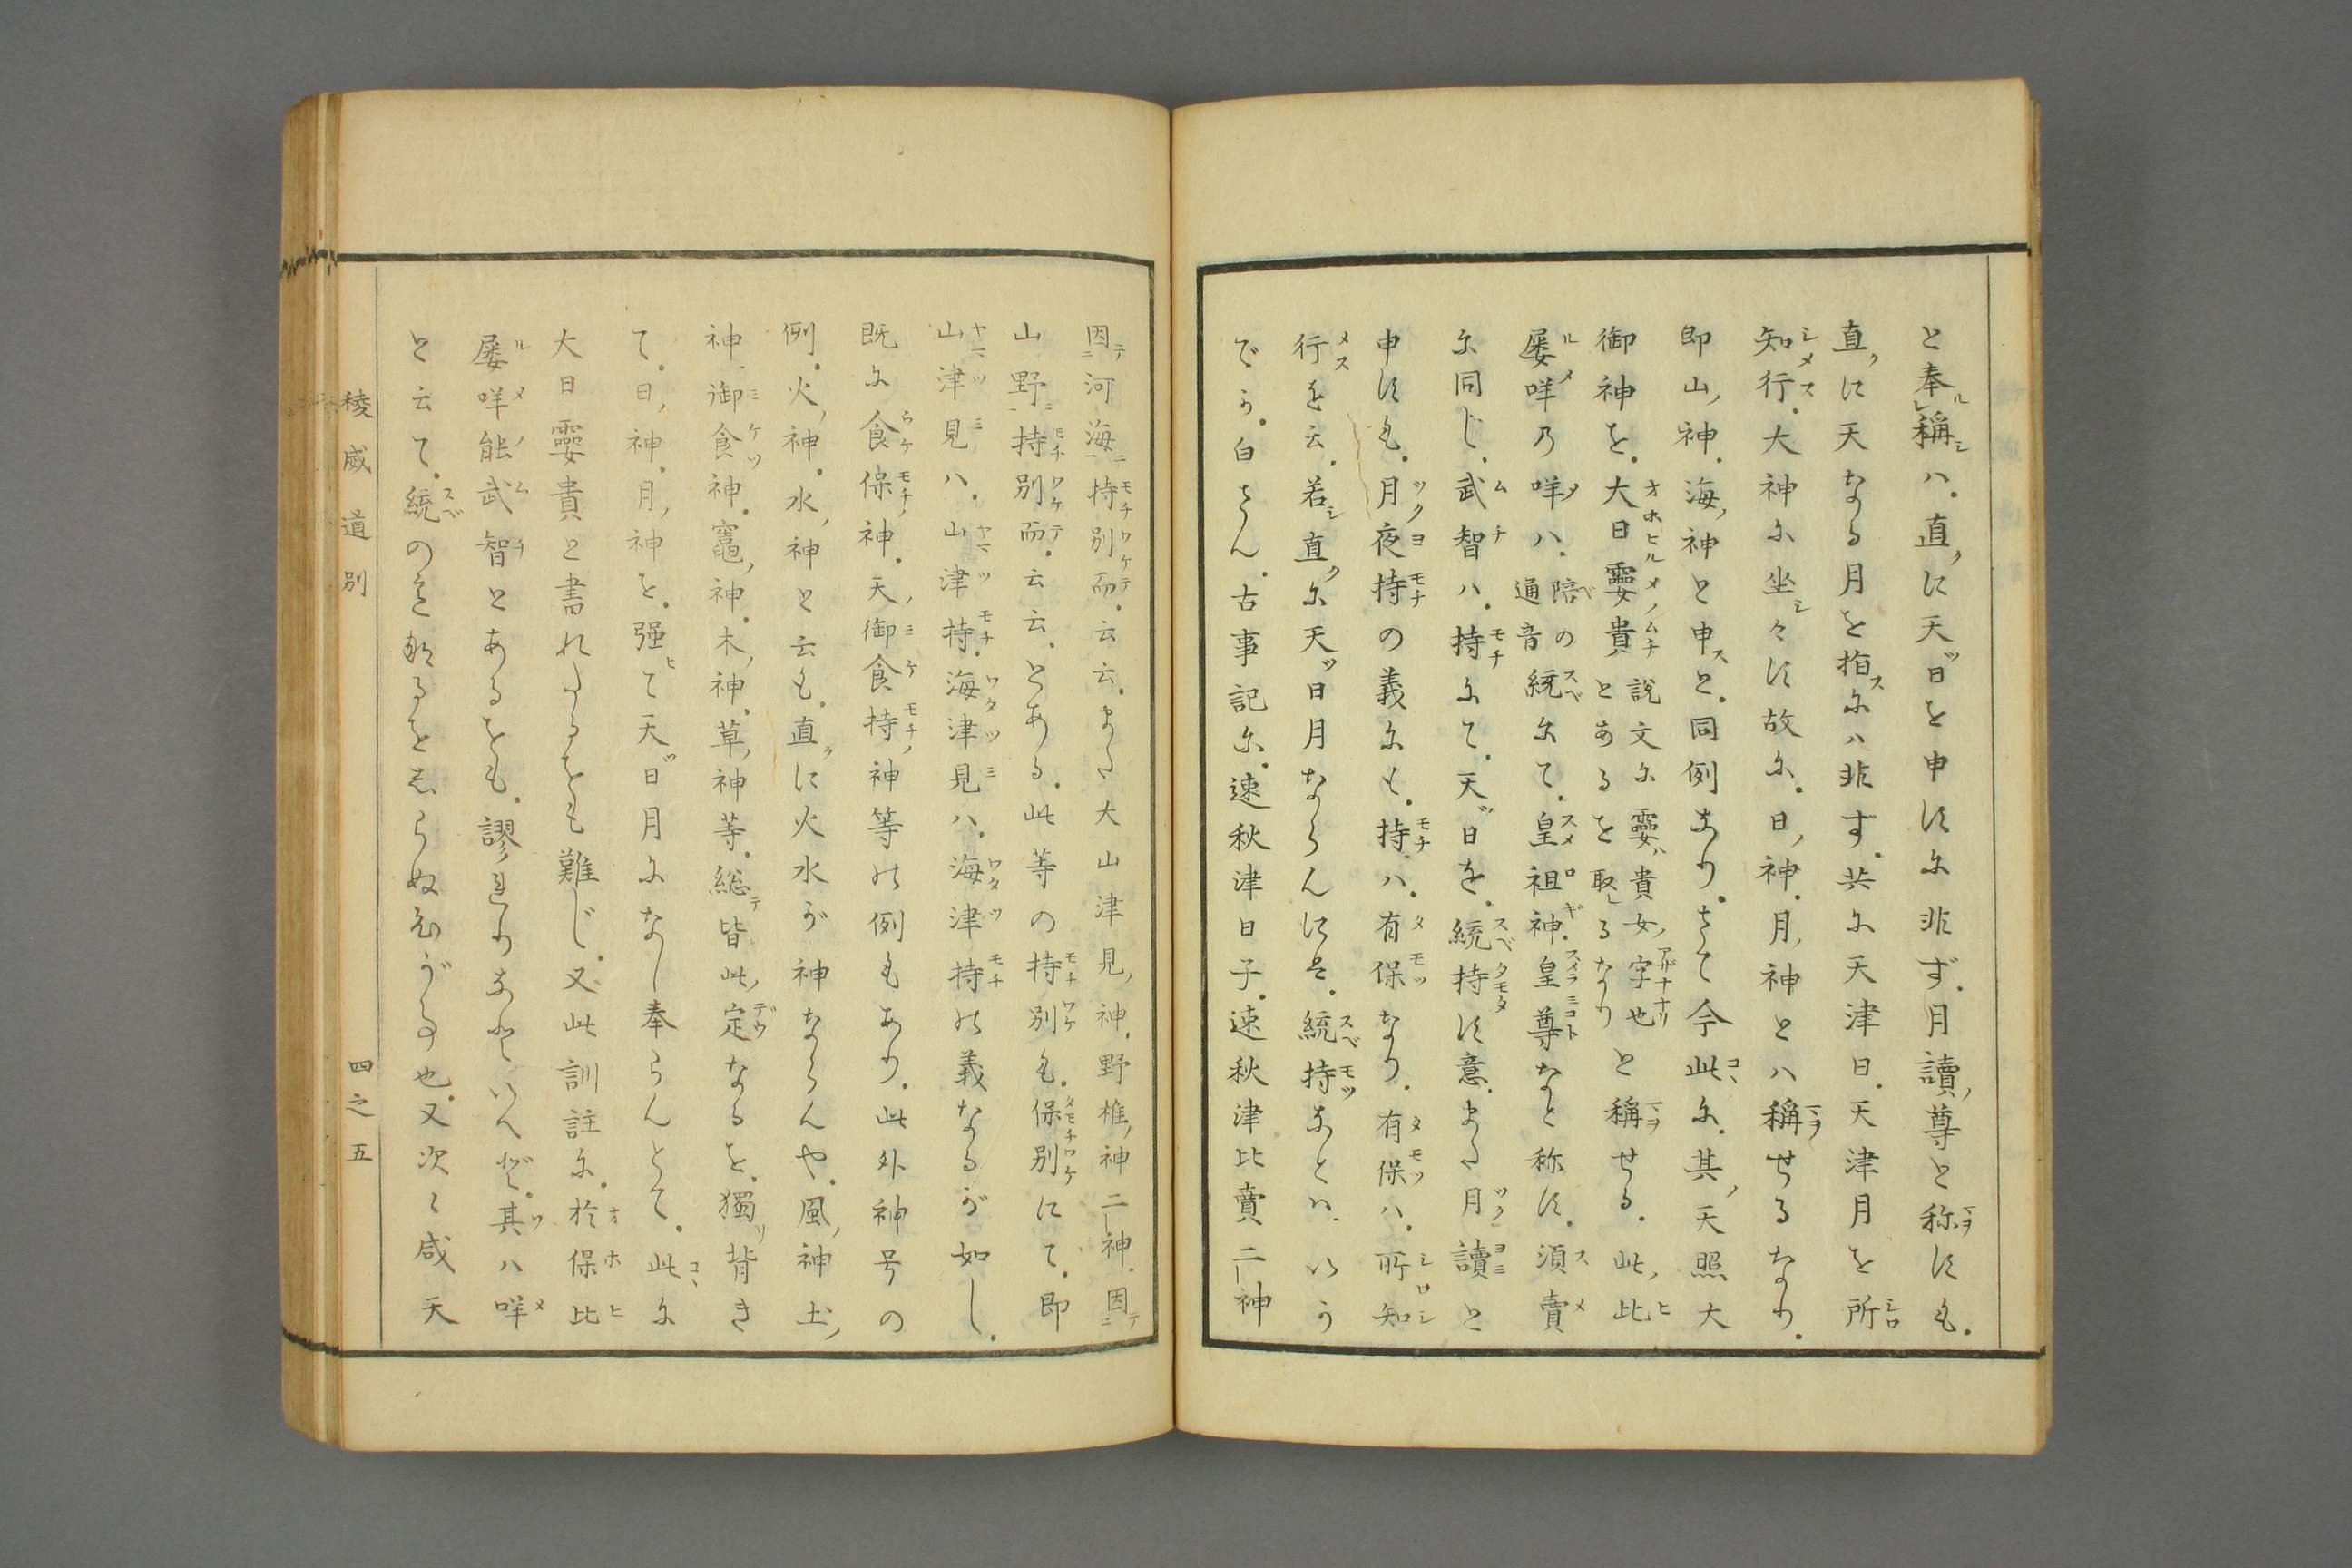 と奉稱ハ。直に天日を申すに非ず。月讀尊と称すも。
直に天なる月を指にハ非ず。共に天津日。天津月を所
知行。大神に坐々す故に。日神。月神とハ稱せるなり。
即山神。海神と申と。同例なり。さて今此に。其天照大
御神を。大日孁貴 説文に孁ハ貴女字也とあるを取るなり と稱せる。此比
屡咩乃咩ハ。陪の通音 統にて。皇祖神。皇尊など称す。須賣
に同じ。武智ハ。持にて。天日を。統持す意。また月讀と
申すも。月夜持の義にて。持ハ。有保なり。有保ハ。所知
行を云。若直に天日月ならんにハ。統持などハ。いか
でか。白さん。古事記に。速秋津日子。速秋津比賣二神
因河海持別而。云云。また大山津見神。野椎神二神。因
山野持別而。云云。とある。此等の持別も。保別にて。即
山津見ハ。山津持。海津見ハ。海津持の義なるが如し。
既に食保神。天御食持神等の例もあり。此外神号の
例。火神。水神と云も。直に火水が神ならんや。風神土
神。御食神。竈神。木神。草神等。総皆此定なるを。獨背き
て。日神。月神を。强て天日月になし奉らんとて。此に
大日孁貴と書れたるをも難じ。又此訓註に。於保比
屡咩能武智とあるをも。謬れりなどいへど。其ハ咩
と云て。統の意なるをしらぬひがこと也。又次々咸天
稜威道別
四之五